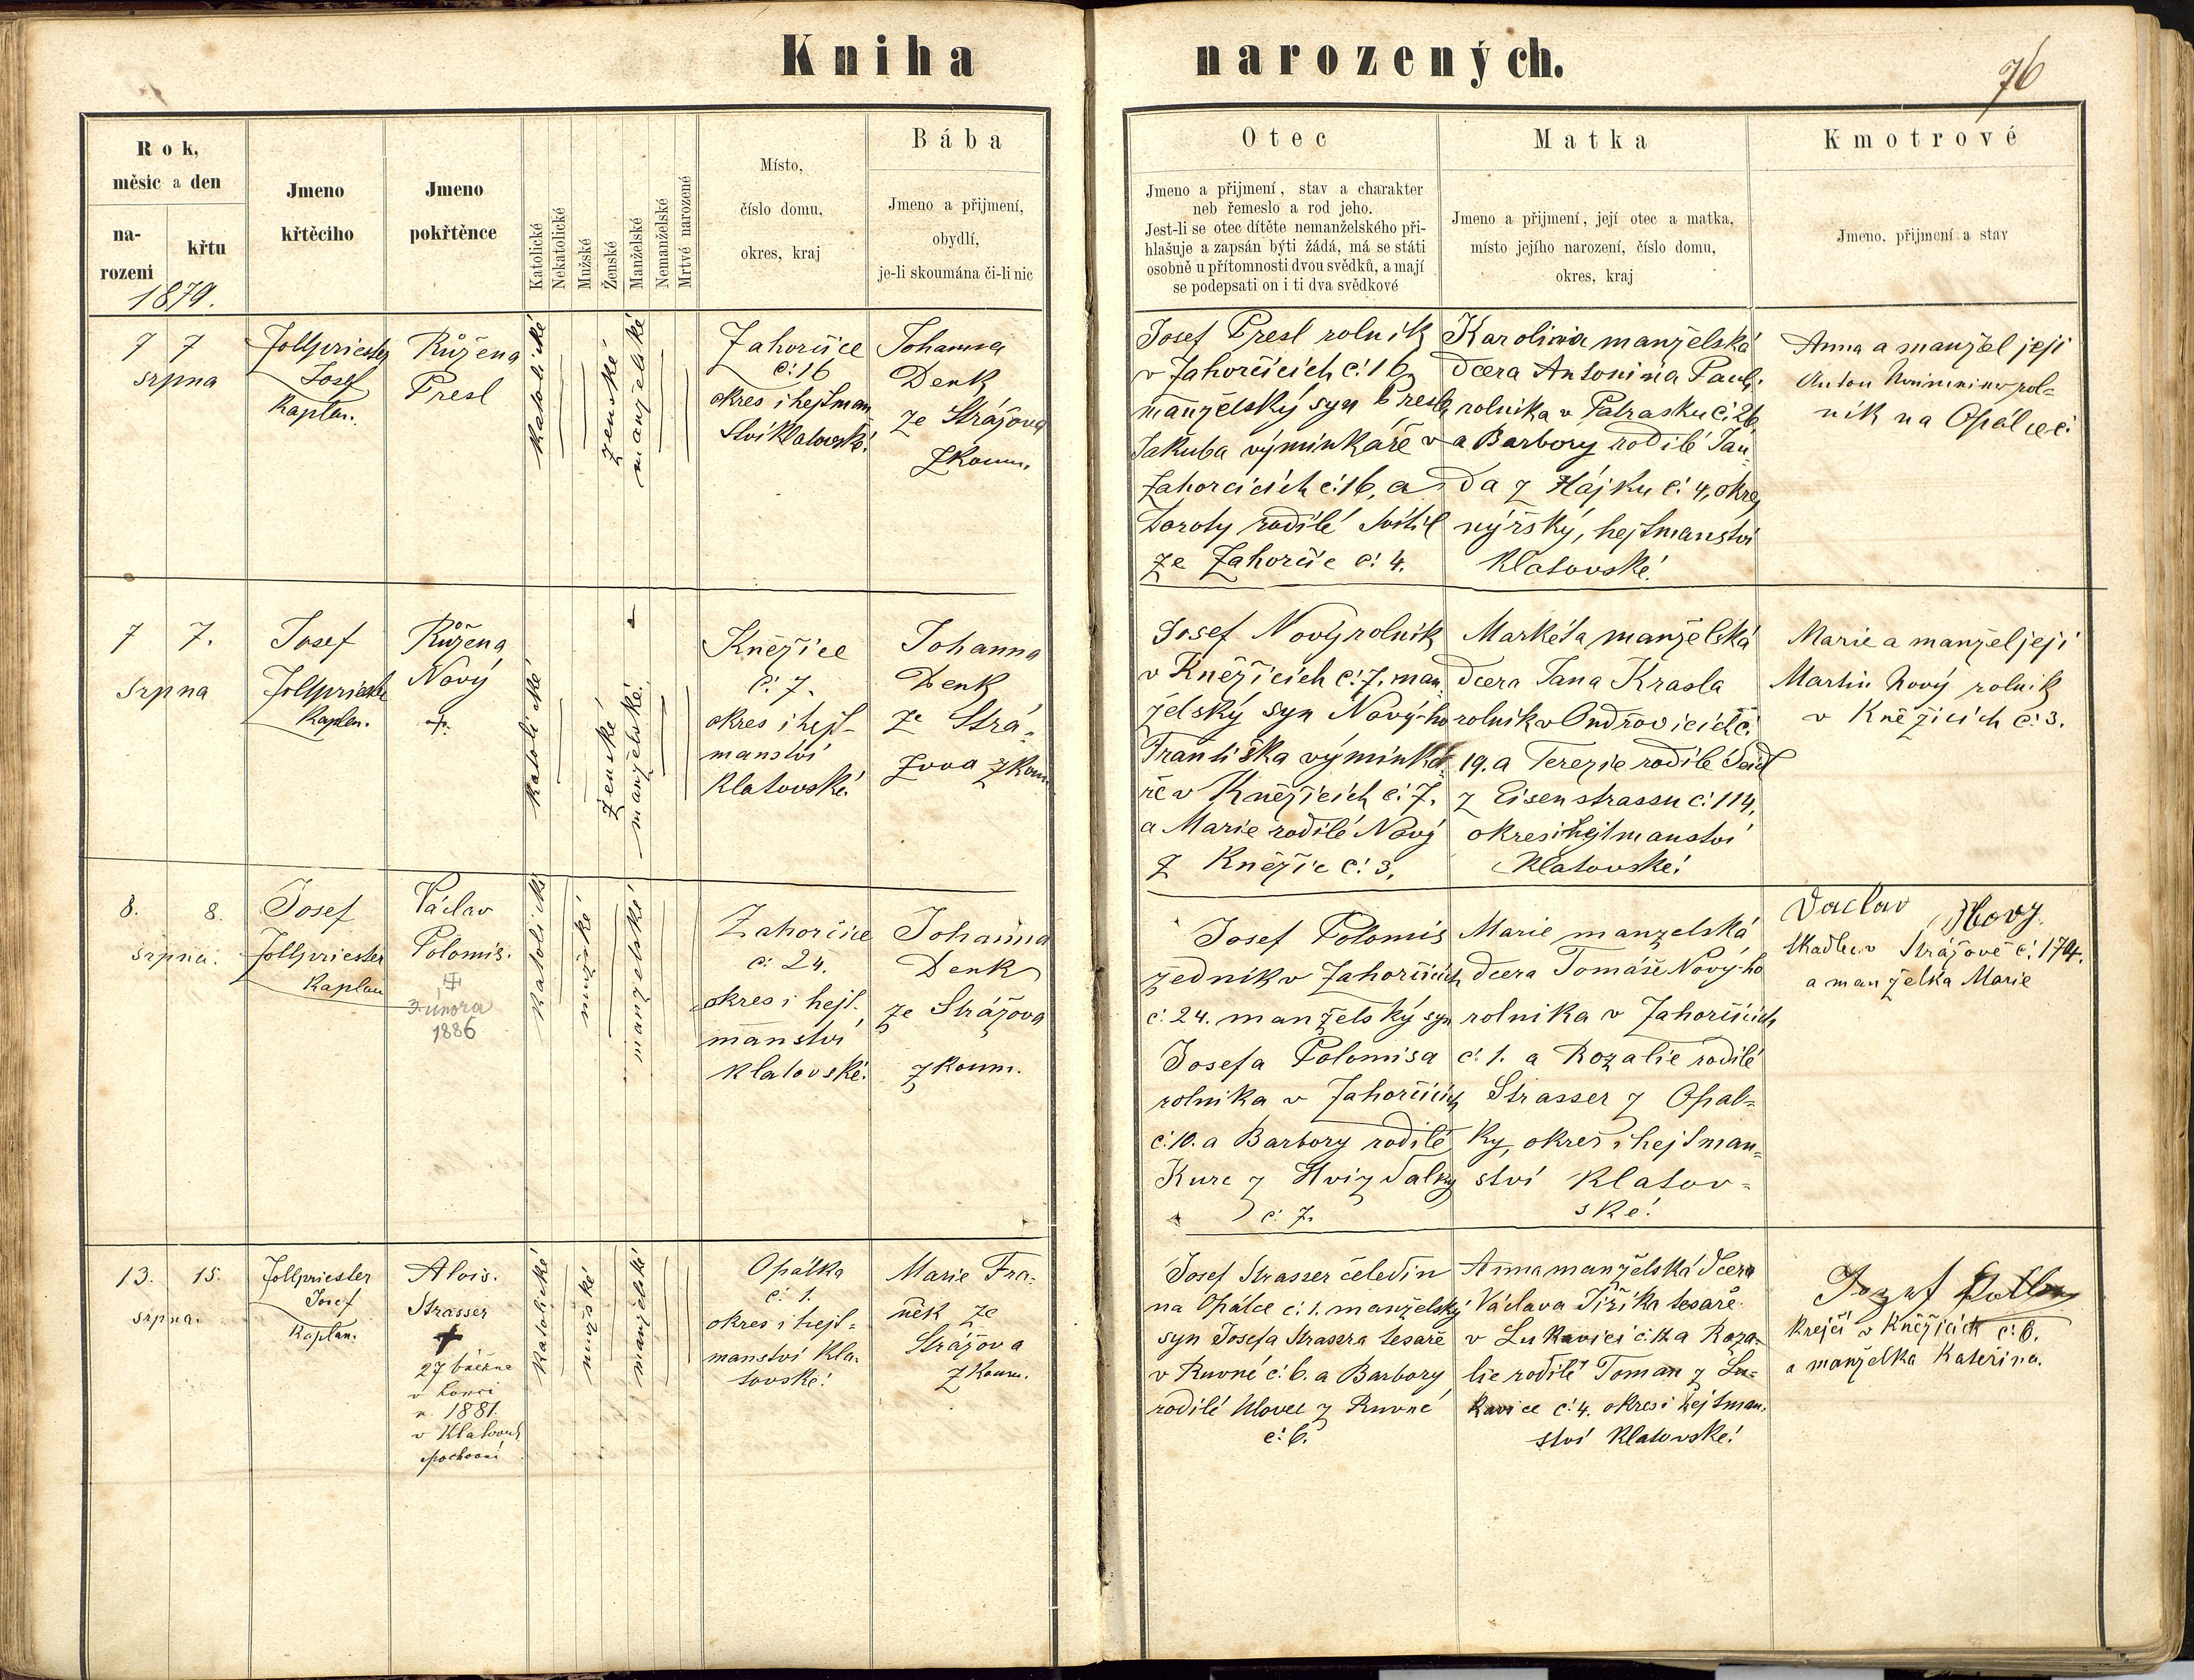 Kniha narozených.
76
Rok,
měsíc a den
na-
rozeni
křtu
1879.
Jmeno
křtěcího
Jmeno
pokřtěnce
Katolické
Nekatolické
Mužské
Ženské
Manželské
Nemanželské
Mrtvé narozené
Místo,
číslo domu,
okres, kraj
Bába
Jmeno a přijmení,
obydlí,
je-li skoumána či-li nic
Otec
Jmeno a přijmení, stav a charakter
neb řemeslo a rod jeho.
Jest-li se otec dítěte nemanželského při-
hlašuje a zapsán býti žádá, má se státi
osobně u přítomnosti dvou svědků, a mají
se podepsati on i ti dva svědkové
Matka
Jmeno a přijmení, její otec a matka,
místo jejího narození, číslo domu,
okres, kraj
Kmotrové
Jmeno, přijmení a stav
7 7
srpna
Zollpriester
Josef
Kaplan.
Růžena
Presl
Katolické
ženské
manželské
Zahorčice
č: 16
okres i hejtman
ství Klatovské.
Johanna
Denk
ze Strážova
zkoum.
Josef Presl rolník
v Zahorčicích č: 16
manželský syn Presla
Jakuba výminkáře v
Zahorčicích č: 16, a
Doroty rodilé
ze Zahorčic č: 4.
Karolina manželská
dcera Antonina Paul.
rolníka v Patrasku č: 26
a Barbory rodilé Jan
da z Hájku č: 4, okres
nýrský, hejtmanství
Klatovské.
Anna a manžel její
Anton rol=
ník na Opálce č:
7 7.
srpna
Josef
Zollpriester
Kaplan.
Růžena
Nový
+
katolické
ženské
manželské.
Kněžice
č: 7.
okres i hejt-
manství
Klatovské.
Johanna
Denk
ze Strá=
žova zkoum
Josef Nový rolník
v Kněžicích č: 7, man
želský syn Nový-ho
Františka výminká
ře v Kněžicích č: 7.
a Marie rodilé Nový
z Kněžic č: 3.
Markéta manželská
dcera Jana Krasla
rolník v Ondřovicích č.
19. a Terezie rodilé Seidl
z Eisenstrassu č: 114,
okres i hejtmanství
Klatovské.
Marie a manžel její
Martin Nový rolník
v Kněžicích č: 3.
8. 8.
srpna.
Josef
Zollpriester
Kaplan
Václav
Polomis.
února
1886
Katolické
mužské
manželské
Zahorčice
č: 24.
okres i hejt.
manství
klatovské.
Johanna
Denk
ze Strážova
zkoum.
Josef Polomis
zedník v Zahorčicích
č: 24. manželský syn
Josefa Polomisa
rolníka v Zahorčicích
č: 10. a Barbory rodilé
Kurc z Hvizdalky
č. 7.
Marie manželská
dcera Tomáše Nový-ho
rolníka v Zahorčicích
č: 1. a Rozalie rodilé
Strasser z Opal=
ky, okres i hejtman=
ství Klatov=
ské.
Vaclav Novy
tkadlec v Strážově č: 174.
a manželka Marie
13. 15.
srpna.
Zollpriester
Josef
Kaplan.
Alois.
Strasser
+
27
v
r. 1881.
v Klatovech
pochován
Katolické
mužské
manželské
Opálka
č: 1.
okres i hejt=
manství Kla=
tovské.
Marie Fra=
něk ze
Strážova
zkoum.
Josef Strasser čeledín
na Opálce č: 1. manželský
syn Josefa Strassra tesaře
v Ruvné č: 6. a Barbory
rodilé Ulovec z Ruvné
č: 6.
Anna manželská dcera
Václava Jiříka tesaře
v Lukavici č: a Roza-
lie rodilé Toman z Lu=
kavice č: 4. okres i hejtman.
ství Klatovské.
Jozef
krejčí v Kněžicích č: 6.
a manželka Kateřina.